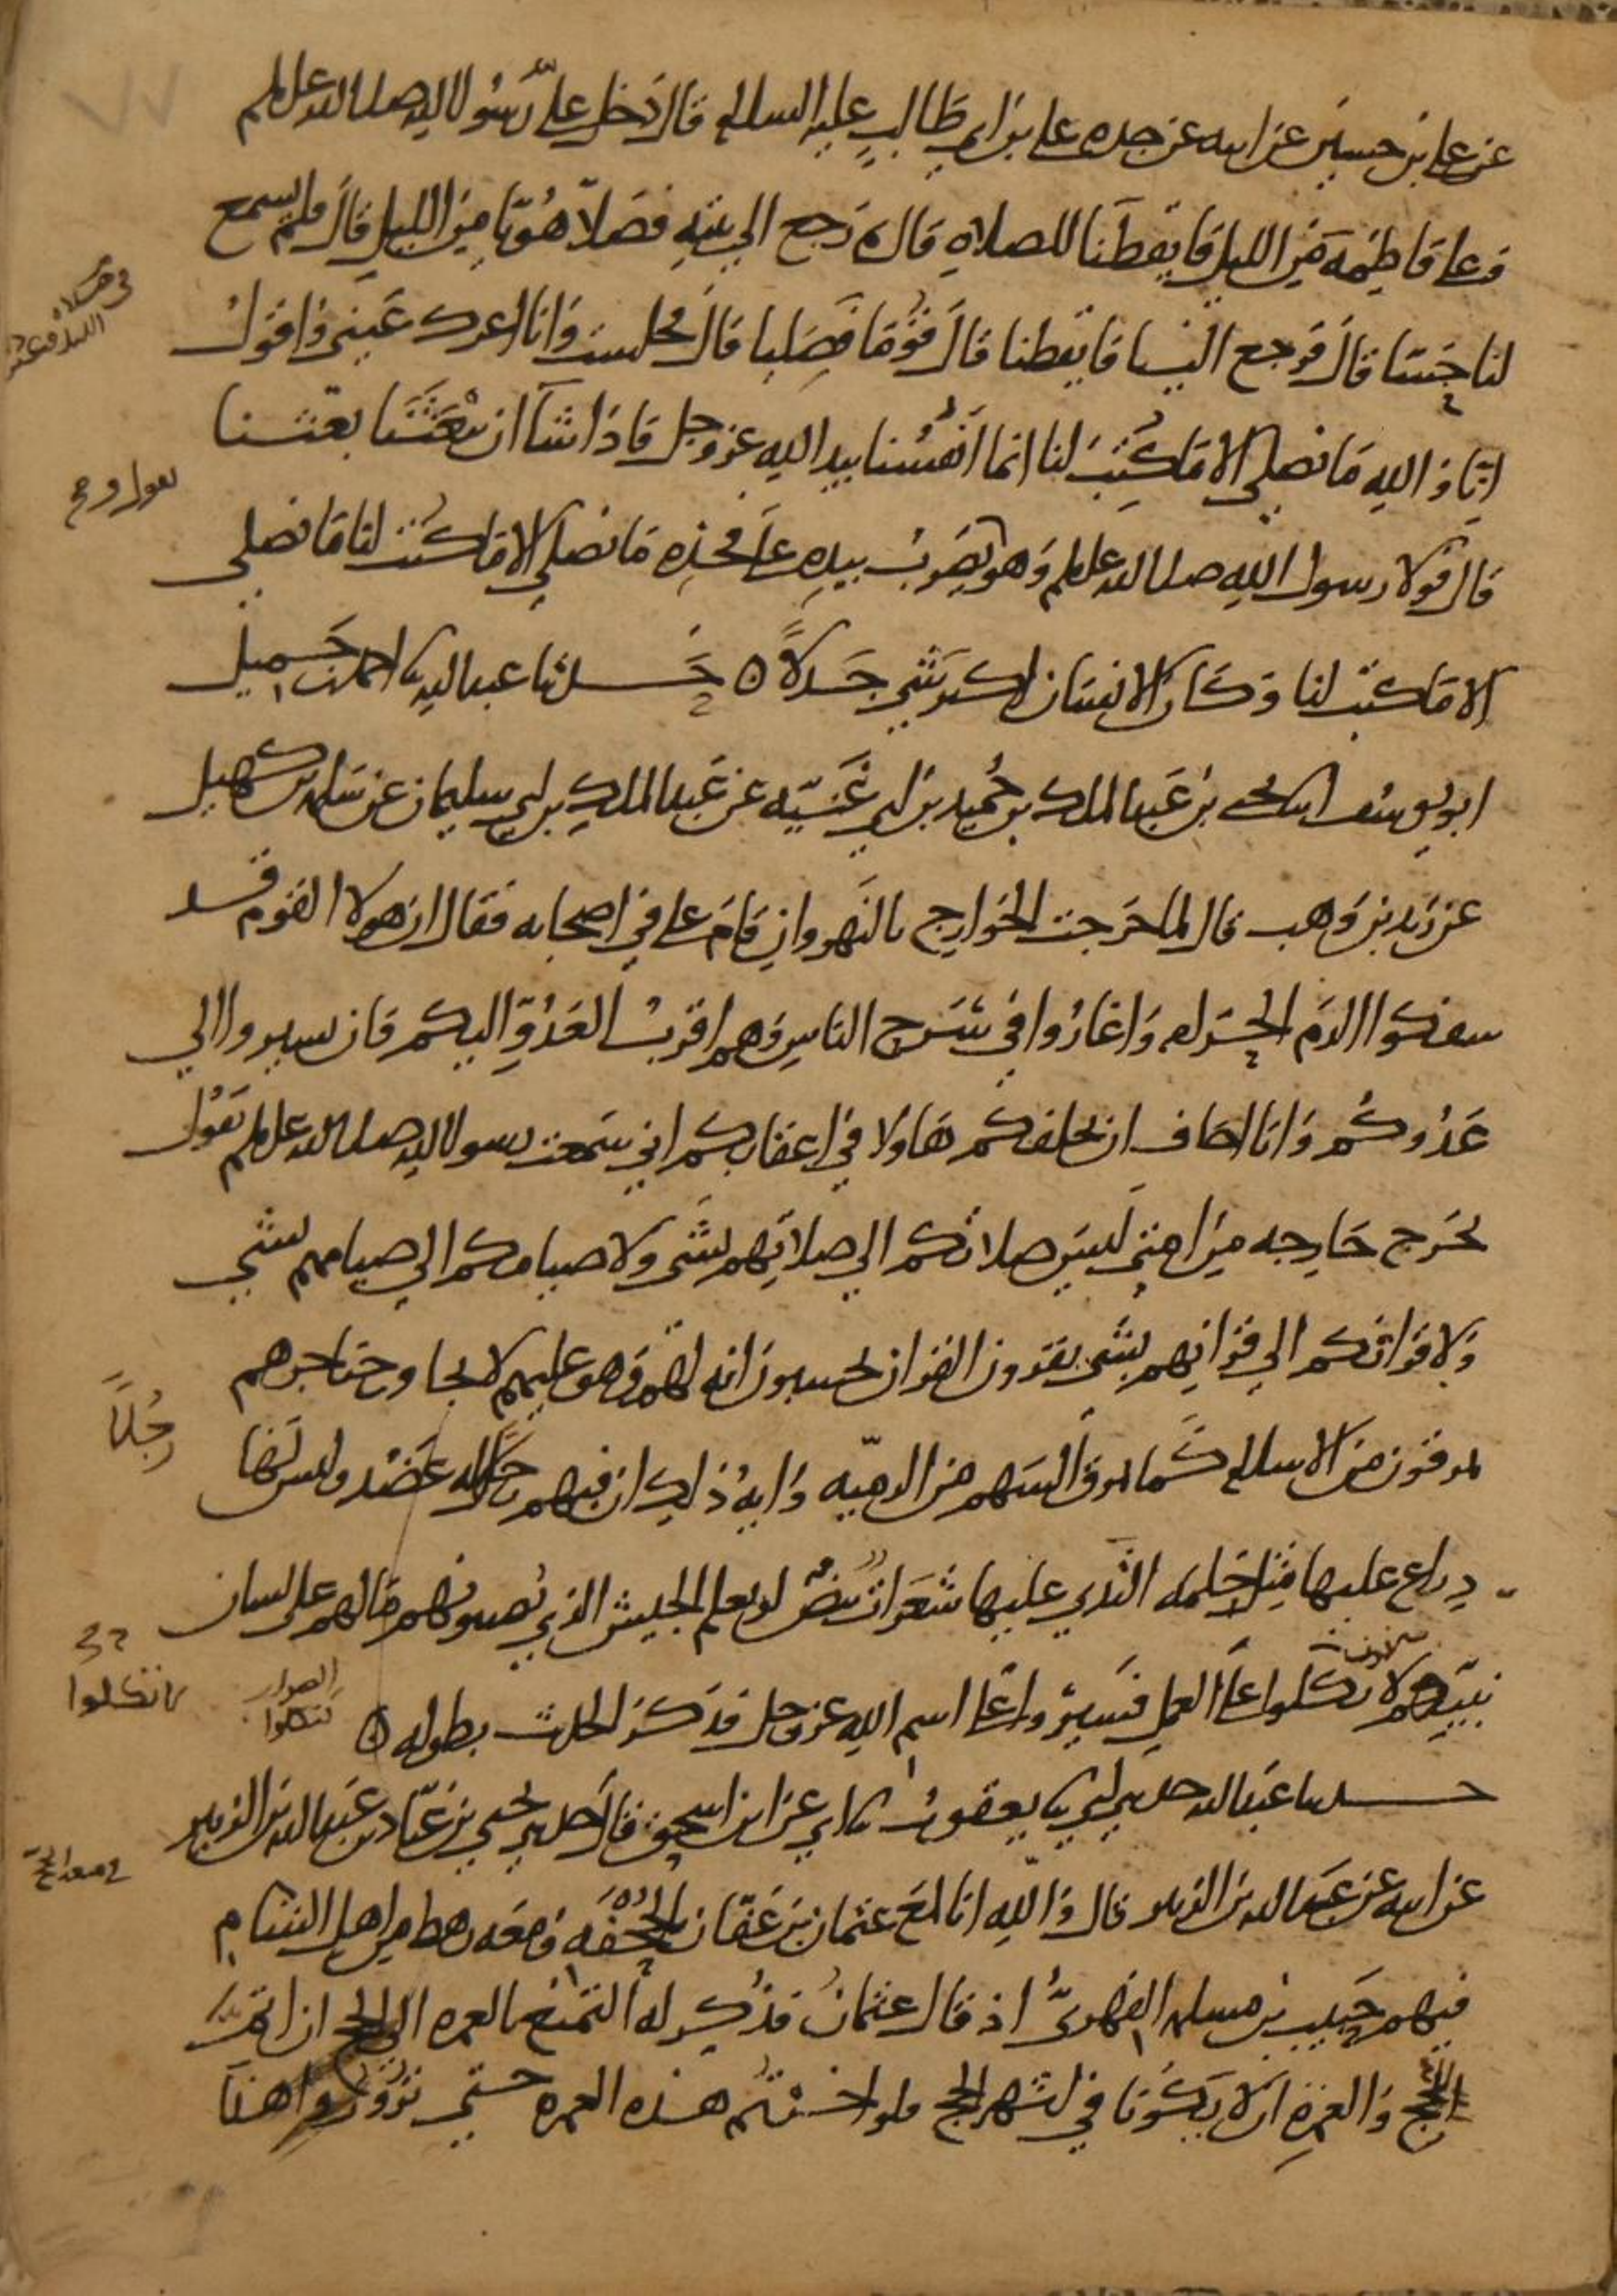 عن علي بن حسين عن ابيه عن جده علي بن ابي طالب عليه السلام قال دخل عليَّ رسول الله صلى الله عليه وسلم
وعلى فاطمة من الليل فايقظنا للصلاة قال ثم رجع الي بيته فصلا هويا من الليل قال فلم يسمع
لنا حسا قال فرجع الينا فايقظنا قال قوما فصليا قال فجلست وانا اعرك عيني واقول
انا والله ما نصلي الا ما كتب لنا انما انفسنا بيد الله عز وجل فاذا شآ ان يبعثنا بعثنا
قال فولا رسول الله صلى الله عليه وسلم وهو يقول ويضرب بيده علي فخذه ما نصلي الا ما كتب لنا ما نصلي
الا ما كتب لنا وكان الانسان اكثر شي جدلا ٥ حدثنا عبد الله نا احمد بن جميل
ابو يوسف انا يحيى بن عبد الملك بن حميد بن ابي غنية عن عبد الملك بن ابي سليمان عن سلمة بن كهيل
عن زيد بن وهب قال لما خرجت الخوارج بالنهروان قام علي في اصحابه فقال ان هولا القوم قد
سفكوا الدم الحرام واغاروا في سرح الناس وهم اقرب العدو اليكم فان تسيروا الي
عدوكم وانا اخاف ان يخلفكم هاولا في اعقابكم اني سمعت رسول الله صلى الله عليه وسلم يقول
تخرج خارجه من امتي ليس صلاتكم الي صلاتهم بشي ولا صيامكم الي صيامهم بشي
ولا قراتكم الي قرانهم بشي يقرون القران يحسبون انه لهم وهو عليهم لا يجاوز حناجرهم
يمرقون من الاسلام كما يمرق السهم من الرميه واية ذلك ان فيهم رجلا له عضد وليس لها
ذراع عليها مثل حلمه الثدي عليها شعرات بيض لو يعلم الجيش الذي يصيبونهم ما لهم على لسان
نبيهم لاتكلوا علي العمل فسيروا علي اسم الله عز وجل فذكر الحديث بطوله ٥
حدثنا عبد الله حدثني ابي نا يعقوب نا ابي عن ابن اسحق قال حدثني يحيي بن عباد بن عبد الله بن الزبير
عن ابيه عن عبد الله بن الزبير قال والله انا لمع عثمان بن عفان بالجحفه ومعه رهط من اهل الشام
فيهم حبيب بن مسلمه الفهري اذ قال عثمان وذكر له التمتع بالعمره الي الحج ان اتم
للحج والعمرة ان لا يكونا في اشهر الحج فلو اخرتم هذه العمره حتي تزوروا هذا
رجلا
لاتكلوا
الصواب